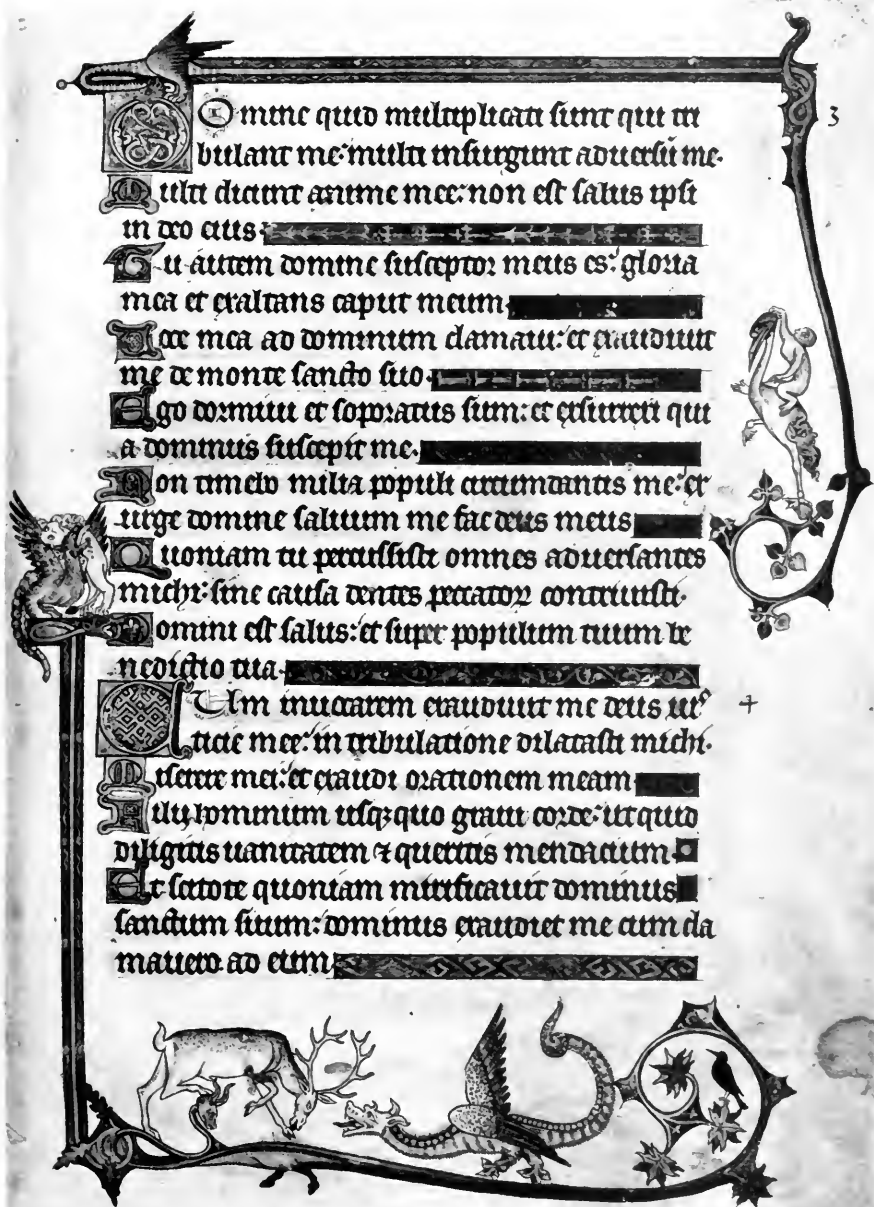 Domine quid multiplicati sunt qui tri
bulant me: multi insurgunt adversū me.
Multi dicunt anime mee: non est salus ipsi
in deo eius.
Tu autem domine susceptor meus es: gloria
mea et exaltans caput meum.
Voce mea ad dominum clamavi: et exaudivit
me de monte sancto suo.
Ego dormivi et soporatus sum: et exsurrexi qui
a dominus suscepit me.
Non timebo milia populi circumdantis me: ex
urge domine salvum me fac deus meus
Quoniam tu percussisti omnes adversantes
michi: sine causa dentes peccatoꝝ contrivisti.
Domini est salus: et super populum tuum be
nedictio tua.
Cum invocarem exaudivit me deus ius
ticie mee: in tribulatione dilatasti michi.
Miserere mei: et exaudi orationem meam
Filii hominum usqꝫ quo gravi corde: ut quid
diligitis vanitatem ⁊ queritis mendacium.
Et scitote quoniam mirificavit dominus
sanctum suum: dominus exaudiet me cum cla
mavero ad eum
3
4